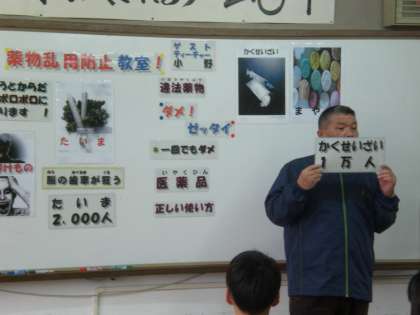 薬物乱用防止教室！
ゲスト
ティーチャー
小野
かくせいざい
まやく
うとからだ
ボロボロに
ります！
たいま
違法薬物
ダメ！
ゼッタイ
一回でもダメ
かくせいざい
1万人
脳の歯車が狂う
いやくひん
医薬品
たいま
2.000人
正しい使い方